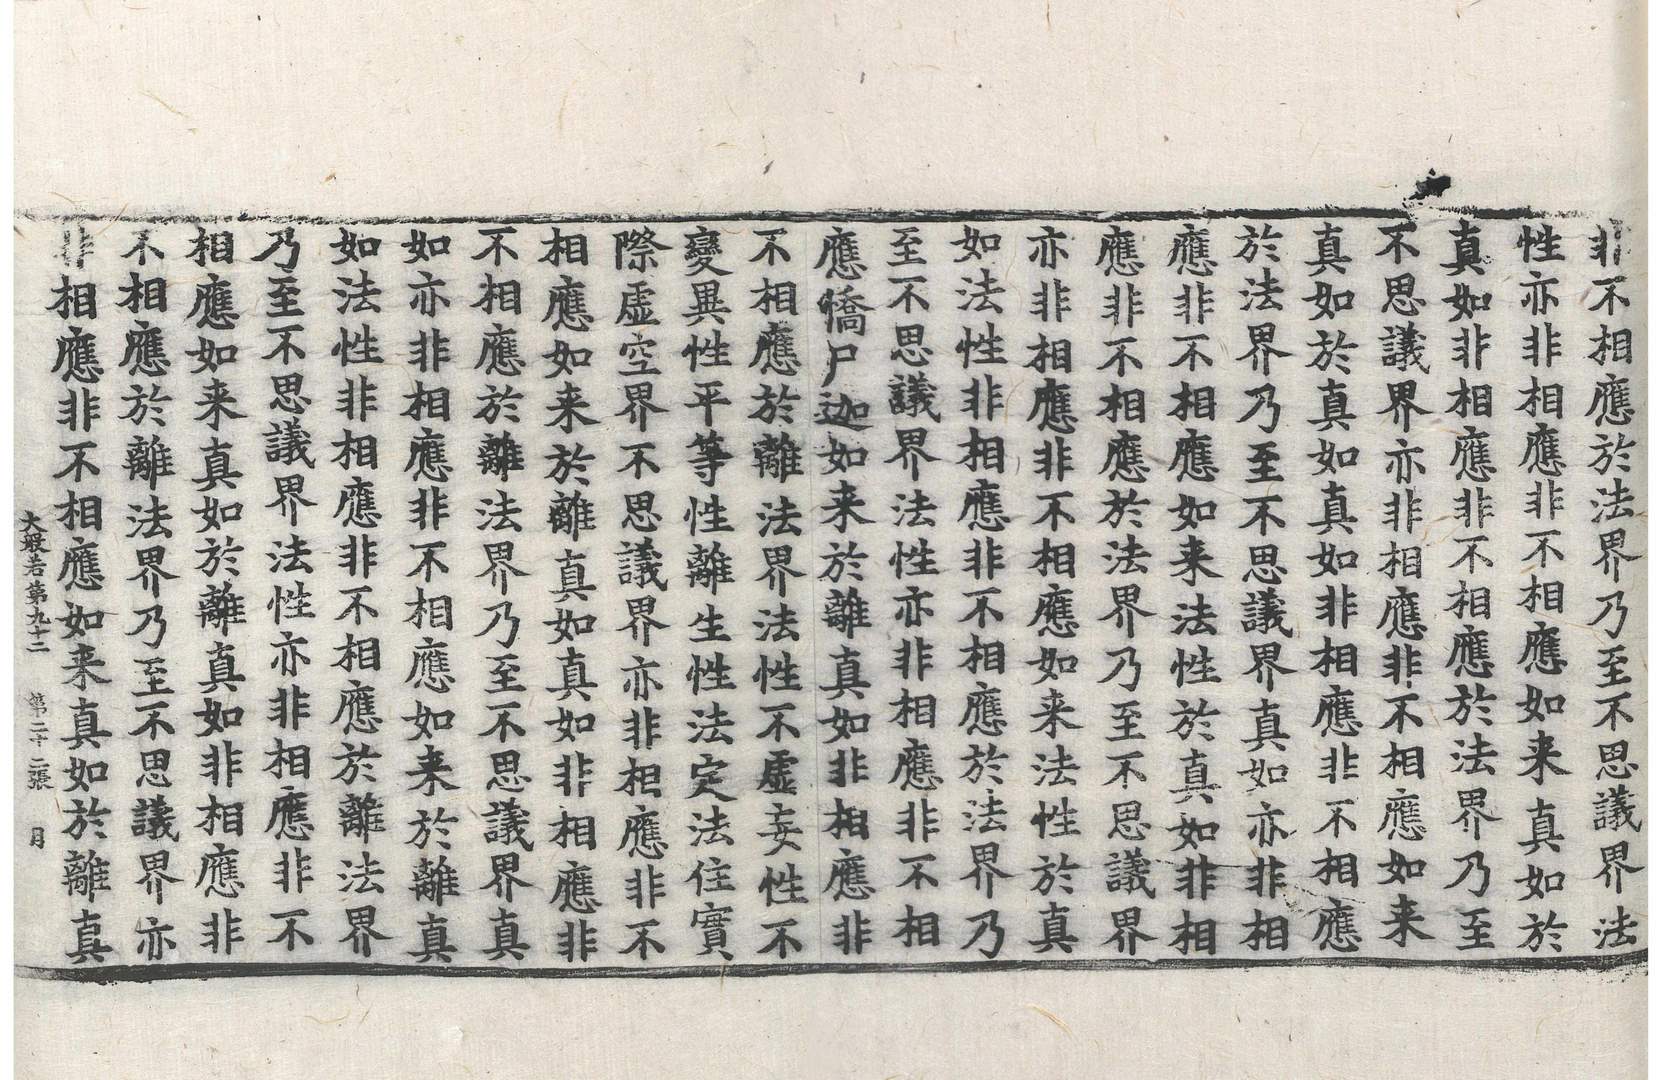 非不相應於法界乃至不思議界法
性亦非相應非不相應如来真如於
真如非相應非不相應於法界乃至
不思議界亦非相應非不相應如来
真如於真如真如非相應非不相應
於法界乃至不思議界真如亦非相
應非不相應如来法性於真如非相
應非不相應於法界乃至不思議界
亦非相應非不相應如来法性於真
如法性非相應非不相應於法界乃
至不思議界法性亦非相應非不相
應憍尸迦如来於離真如非相應非
不相應於離法界法性不虛妄性不
變異性平等性離生性法定法住實
際虛空界不思議界亦非相應非不
相應如来於離真如真如非相應非
不相應於離法界乃至不思議界真
如亦非相應非不相應如来於離真
如法性非相應非不相應於離法界
乃至不思議界法性亦非相應非不
相應如来真如於離真如非相應非
不相應於離法界乃至不思議界亦
非相應非不相應如来真如於離真
大般若第九十二 第二十二張 月